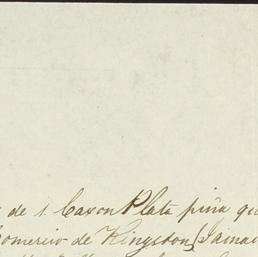 de 1. Caxon Plata piña qu
Comercio de Kingston (Jamai